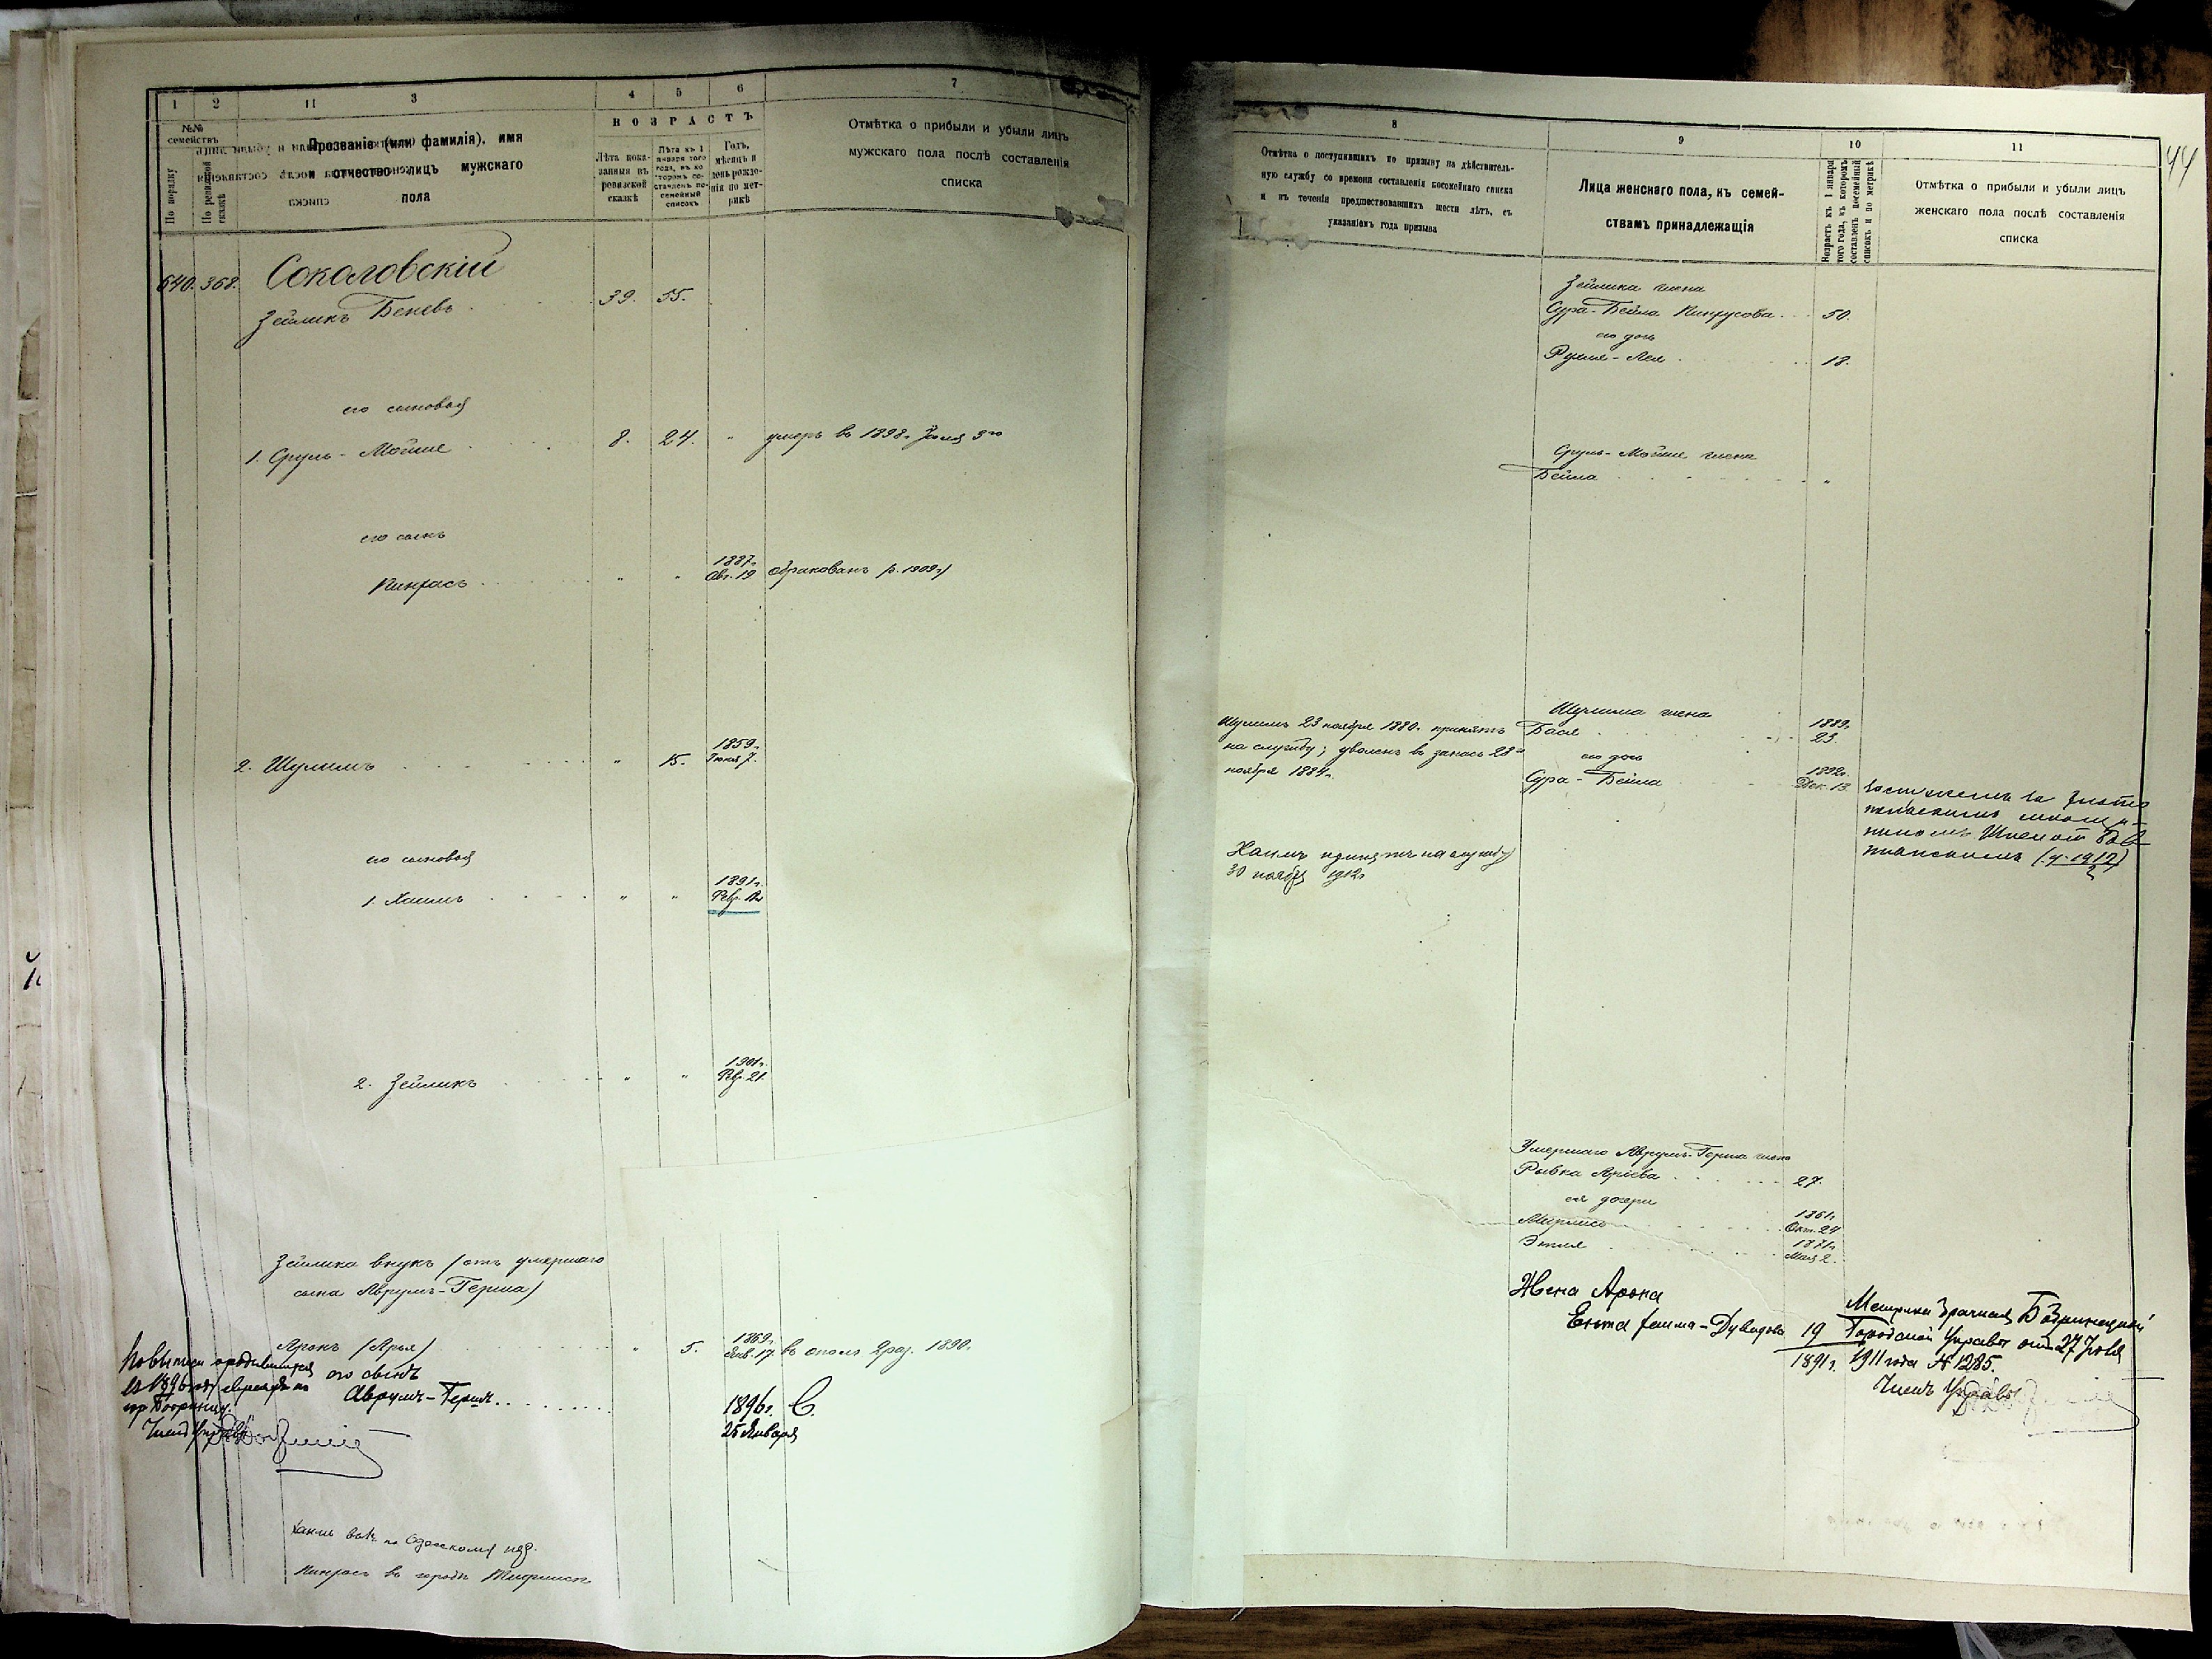 1 2 3 4 5 6 7
№№ семействъ
По порядку
По ревизской сказкѣ
Прозваніе (или фамилія), имя
и отчество лицъ мужскаго
пола
ВОЗРАСТЪ
Лѣта пока-
занныя въ
ревизской
сказкѣ
Лѣта къ 1
января того
года, въ ко-
торомъ со-
ставленъ по-
семейный
списокъ
Годъ,
мѣсяцъ и
день рожде-
нія по мет-
рикѣ
Отмѣтка о прибыли и убыли лицъ
мужскаго пола послѣ составленія
списка
640. 368. Соколовскій
Зейликъ Беневъ 39. 55.
его сыновья
1. Сруль-Мойше 8. 24. " умеръ въ 1898г. Іюля 3го
его сынъ
Пинхасъ " " 1887г. Авг. 19 обракованъ (п. 1909г)
2. Шулимъ " 15. 1859г. Іюня 7.
его сыновья
1. Хаимъ " " 1891г. Февр.
2. Зейликъ " " 1901г. Февр. 21.
Зейлика внукъ (отъ умершаго
сына Аврумъ-Герша)
Аронъ (Арья) " 5. 1869г. Янв. 17. въ опол. 2 раз. 1890г.
его сынъ
Аврумъ-Гершъ 1896г. 25 Января С.
Хаимъ
Пинхасъ въ городѣ Тифлисѣ
8 9 10 11
44
Отмѣтка о поступившихъ по призыву на дѣйствитель-
ную службу со времени составленія посемейнаго списка
и въ теченіи предшествовавшихъ шести лѣтъ, съ
указаніемъ года призыва
Лица женскаго пола, къ семей-
ствамъ принадлежащія
Возрастъ къ 1 января
того года, въ которомъ
составленъ посемейный
списокъ и по метрикѣ
Отмѣтка о прибыли и убыли лицъ
женскаго пола послѣ составленія
списка
Зейлика жена
Сура-Бейла Пинхусова 50.
его дочь
Рухля-Лея 18.
Сруль-Мойше жена
Бейла "
Шулимъ 23 ноября 1880г. принятъ
на службу; уволенъ въ запасъ 28го
ноября 1884г.
Шулима жена
Бася 1889г. 23.
его дочь
Сура-Бейла 1892г. Дек. 13
(у. 1912)
Хаимъ принятъ на службу
30 ноября 1912г
Умершаго Аврумъ-Герша жена
Рывка Аріева 27.
ея дочери
1861г. Окт. 24
Этля 1871г. Мая 2.
Жена Арона
Ента -Дувидова 19 1891г.
Метрика брачная Бобринецкой
Городской Управы отъ 27 Іюля
1911 года № 1285.
Членъ Управы